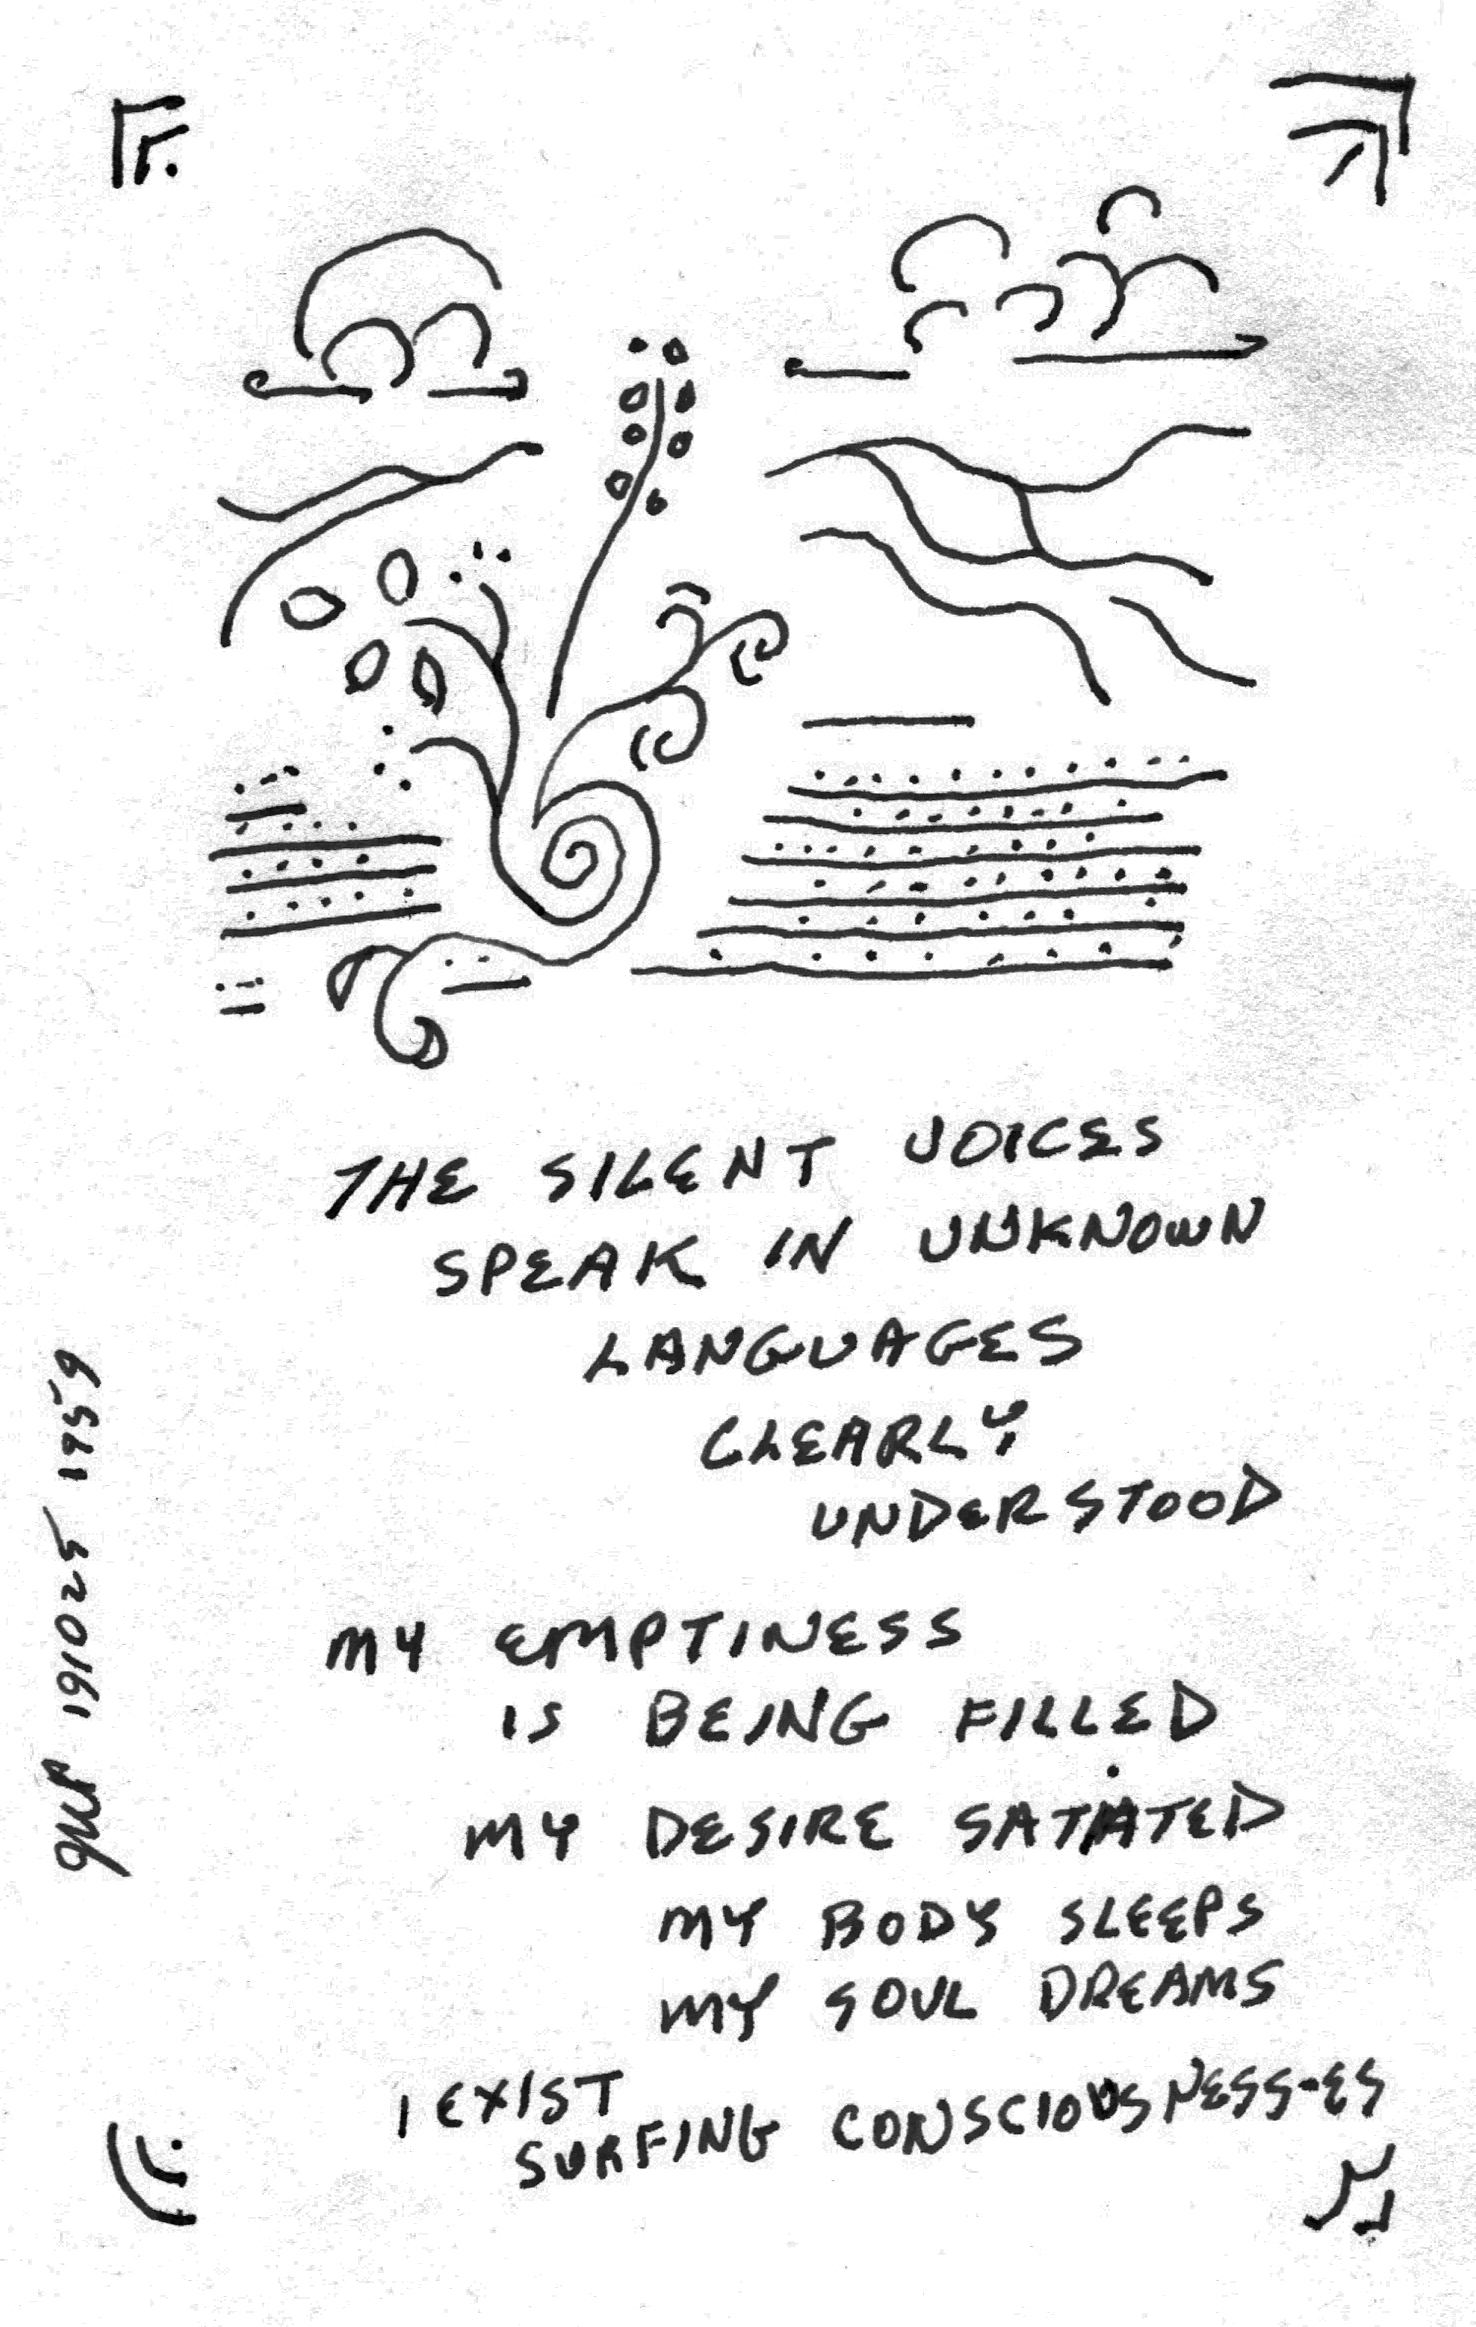 THE SILENT VOICES
SPEAK IN UNKNOWN
LANGUAGES
CLEARLY
UNDERSTOOD
MY EMPTINESS
IS BEING FILLED
MY DESIRE SATIATED
MY BODY SLEEPS
MY SOUL DREAMS
I EXIST
SURFING CONSCIOUSNESS-ES
191025 1959